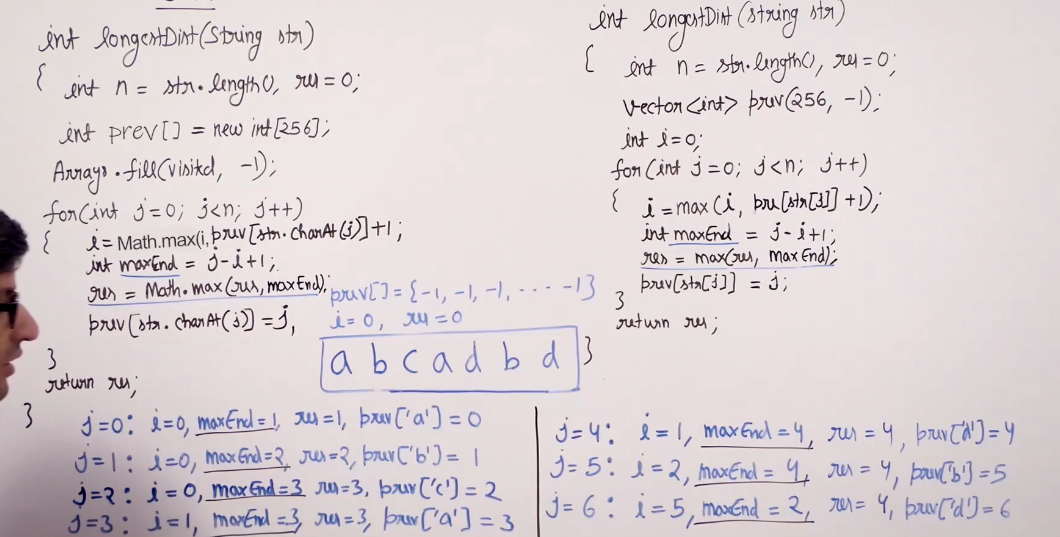 int longestDist(String str)
{
int n = str.length(), res=0;
int prev[] = new int[256];
Arrays.fill(visited, -1);
for(int j=0; j<n; j++)
{
i= Math.max(i, prev[str.charAt(j)]+1;
int maxEnd = j-i+1;
res = Math.max(res, maxEnd);
prev[str.charAt(j)] = j,
}
return res;
}
int longestDist(string str)
{
int n = str.length(), res=0;
vector<int> prev(256, -1);
int i=0;
for(int j=0; j<n; j++)
{
i=max(i, prev[str[j]]+1);
int maxEnd = j-i+1;
res = max(res, maxEnd);
prev[str[j]] = j;
}
return res;
}
prev[]={-1, -1, -1, .... -1}
i=0, res=0
a b c a d b d
j=0: i=0, maxEnd=1, res=1, prev['a']=0
j=1: i=0, maxEnd=2, res=2, prev['b']=1
j=2: i=0, maxEnd=3 res=3, prev['c']=2
j=3: i=1, maxEnd=3, res=3, prev['a']=3
j=4: i=1, maxEnd=4, res=4, prev['d']=4
j=5: i=2, maxEnd=4, res=4, prev['b']=5
j=6: i=5, maxEnd=2, res=4, prev['d']=6